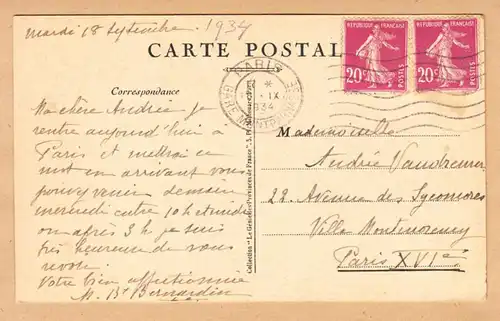 Mardi 18 Septembre 1934
CARTE POSTALE
REPUBLIQUE FRANÇAISE
20c POSTES
REPUBLIQUE FRANÇAISE
20c POSTES
PARIS
IX
1934
GARE MONTPARNASSE
Correspondance
Ma chère Andrée je
rentre aujourd'hui à
Paris et mettrai ce
mot en arrivant vous
pouvez venir demain
mercredi entre 10h et midi
ou après 3h je suis
très heureuse de vous
revoir
Votre bien affectionnée
M. Bernardin
Collection
Mademoiselle
Andrée Vaudremer
22 Avenue des Sycomores
Villa Montmorency
Paris XVIe